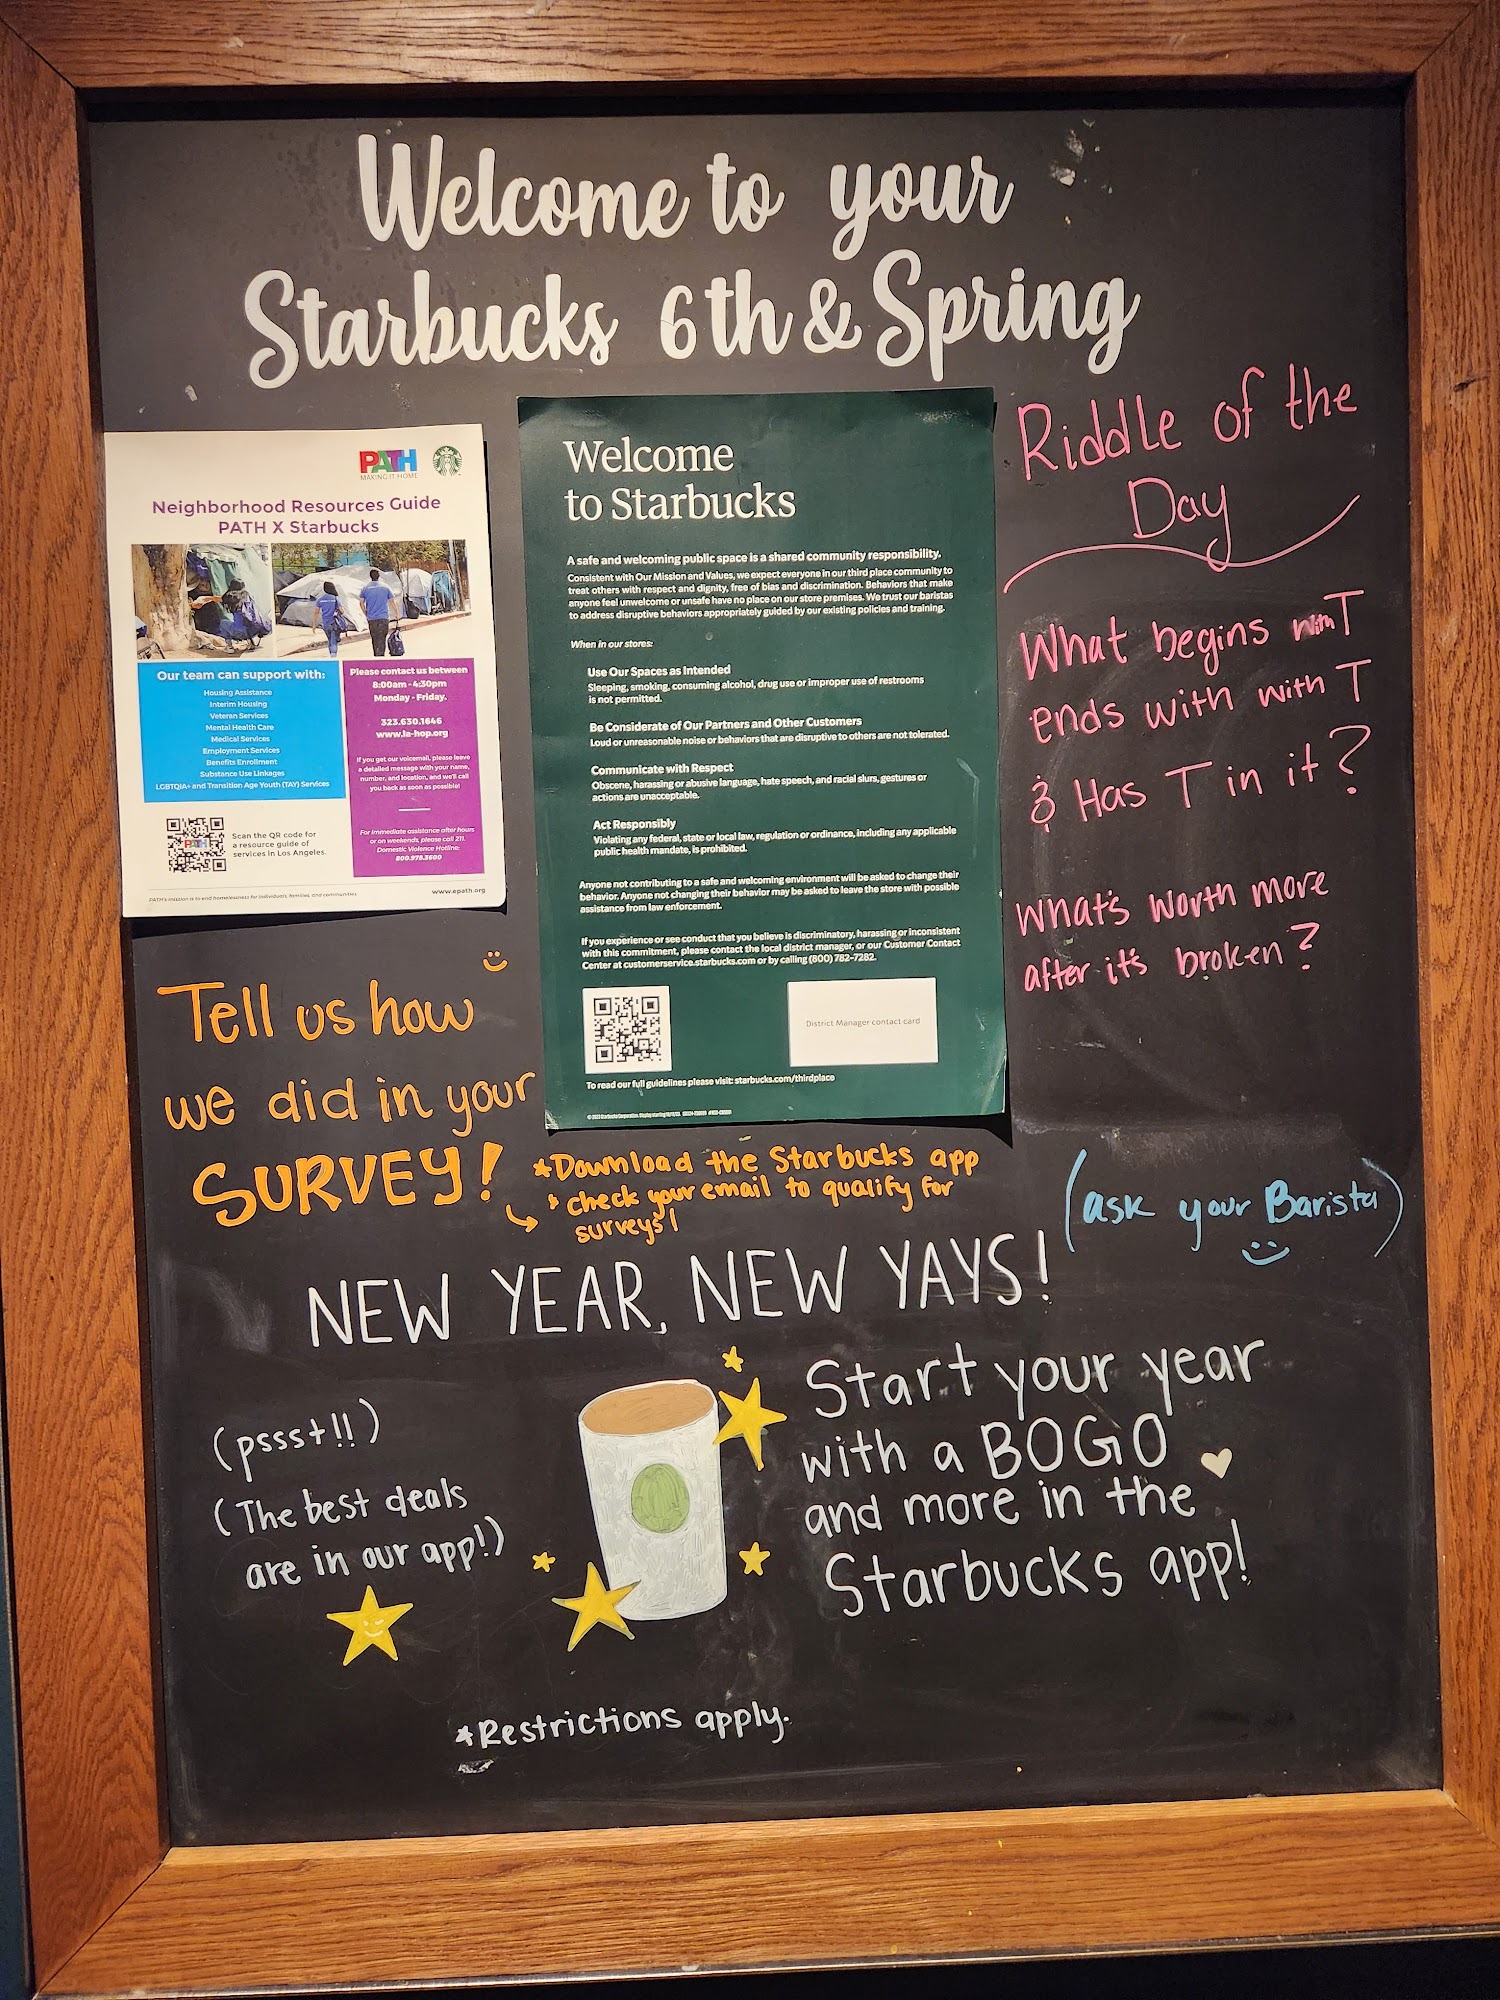 Welcome to your
Starbucks 6th & Spring
PATH
MAKING IT HOME
Neighborhood Resources Guide
PATH X Starbucks
Our team can support with:
Housing Assistance
Interim Housing
Veteran Services
Mental Health Care
Medical Services
Employment Services
Benefits Enrollment
Substance Use Linkages
LGBTQIA+ and Transition Age Youth (TAY) Services
Please contact us between
8:00am - 4:30pm
Monday - Friday.
323.630.1646
www.la-hop.org
If you get our voicemail, please leave
a detailed message with your name,
number, and location, and we'll call
you back as soon as possible!
For immediate assistance after hours
or on weekends, please call 211.
Domestic Violence Hotline:
800.978.3600
PATH
Scan the QR code for
a resource guide of
services in Los Angeles.
PATH's mission is to end homelessness for individuals, families, and communities.
www.epath.org
Welcome
to Starbucks
A safe and welcoming public space is a shared community responsibility.
Consistent with Our Mission and Values, we expect everyone in our third place community to
treat others with respect and dignity, free of bias and discrimination. Behaviors that make
anyone feel unwelcome or unsafe have no place on our store premises. We trust our baristas
to address disruptive behaviors appropriately guided by our existing policies and training.
When in our stores:
Use Our Spaces as Intended
Sleeping, smoking, consuming alcohol, drug use or improper use of restrooms
is not permitted.
Be Considerate of Our Partners and Other Customers
Loud or unreasonable noise or behaviors that are disruptive to others are not tolerated.
Communicate with Respect
Obscene, harassing or abusive language, hate speech, and racial slurs, gestures or
actions are unacceptable.
Act Responsibly
Violating any federal, state or local law, regulation or ordinance, including any applicable
public health mandate, is prohibited.
Anyone not contributing to a safe and welcoming environment will be asked to change their
behavior. Anyone not changing their behavior may be asked to leave the store with possible
assistance from law enforcement.
If you experience or see conduct that you believe is discriminatory, harassing or inconsistent
with this commitment, please contact the local district manager, or our Customer Contact
Center at customerservice.starbucks.com or by calling (800) 782-7282.
District Manager contact card
To read our full guidelines please visit: starbucks.com/thirdplace
Riddle of the
Day
What begins with T
ends with with T
& Has T in it?
What's worth more
after it's broken?
(ask your Barista)
Tell us how
we did in your
SURVEY!
*Download the Starbucks app
+ check your email to qualify for
surveys!
NEW YEAR, NEW YAYS!
(pssst!!)
(The best deals
are in our app!)
Start your year
with a BOGO
and more in the
Starbucks app!
*Restrictions apply.